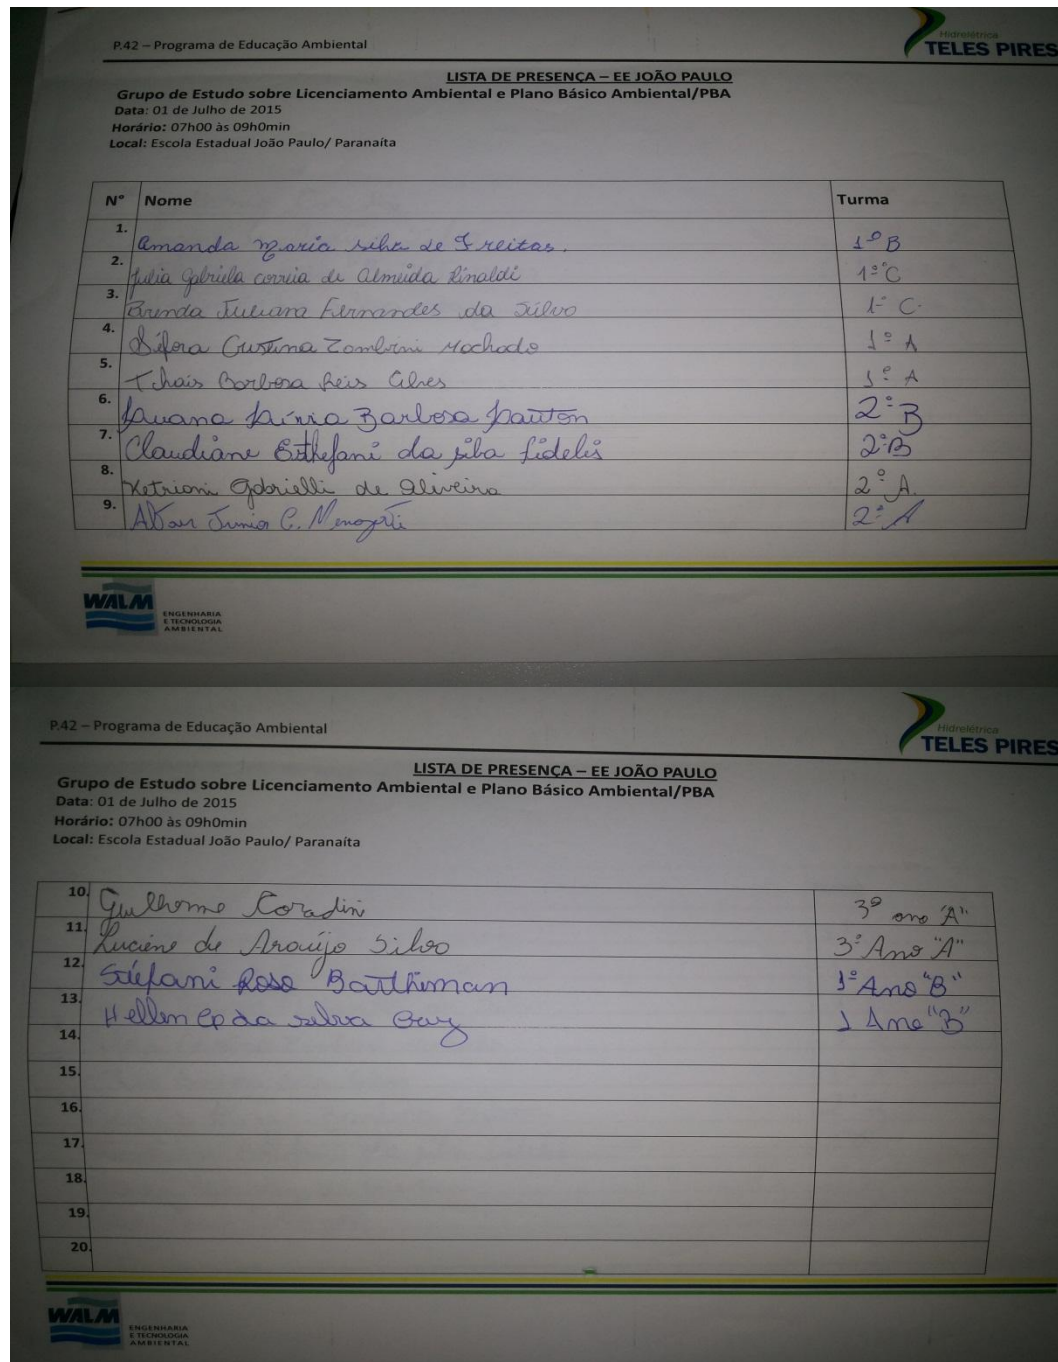 P.42 – Programa de Educação Ambiental
Hidrelétrica
TELES PIRES
LISTA DE PRESENÇA – EE JOÃO PAULO
Grupo de Estudo sobre Licenciamento Ambiental e Plano Básico Ambiental/PBA
Data: 01 de Julho de 2015
Horário: 07h00 às 09h0min
Local: Escola Estadual João Paulo/ Paranaíta
N° Nome Turma
1. Amanda Maria silva de Freitas. 1º B
2. Julia Gabriela correia de Almeida Rinaldi 1º C
3. Brenda Juliana Fernandes da Silva 1º C.
4. Séfora Cristina Zambrini Machado 1º A
5. Thais Barbosa Reis Alves 1º A
6. Barbosa 2º B
7. Claudiane Esthefani da silva fidelis 2º B
8. Ketrioni Gabrielli de Oliveira 2º A.
9. Junior C. 2º A
WALM
ENGENHARIA
E TECNOLOGIA
AMBIENTAL
P.42 – Programa de Educação Ambiental
Hidrelétrica
TELES PIRES
LISTA DE PRESENÇA – EE JOÃO PAULO
Grupo de Estudo sobre Licenciamento Ambiental e Plano Básico Ambiental/PBA
Data: 01 de Julho de 2015
Horário: 07h00 às 09h0min
Local: Escola Estadual João Paulo/ Paranaíta
10. Guilherme Coradini 3º ano "A"
11. Luciene de Araújo Silva 3º Ano "A"
12. Stéfani Rosa Barthiman 1º Ano "B"
13. Hellen da selva 1 Ano "B"
14.
15.
16.
17.
18.
19.
20.
WALM
ENGENHARIA
E TECNOLOGIA
AMBIENTAL